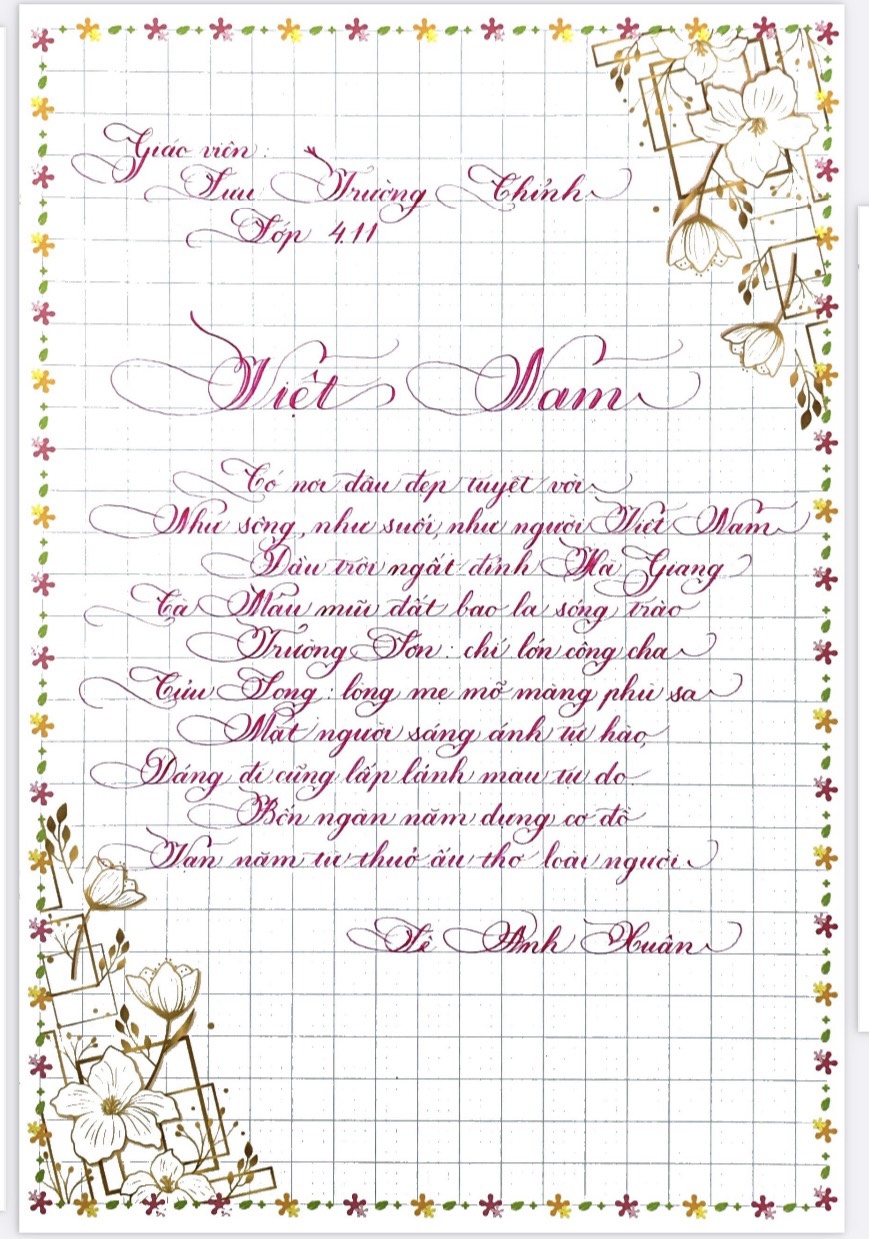 Giáo viên:
Lưu Trường Chinh
Lớp 4.11
Việt Nam
Có nơi đâu đẹp tuyệt vời
Như sông, như suối, như người Việt Nam
Đầu trời ngất đỉnh Hà Giang
Cà Mâu mũi đất bao la sóng trào
Trường Sơn: chí lớn công cha
Cửu Long: lòng mẹ mỡ màng phù sa
Mặt người sáng ánh tự hào,
Dáng đi cũng lấp lánh màu tự do
Bốn ngàn năm dựng cơ đồ
Vạn năm từ thuở ấu thơ loài người
Lê Anh Xuân